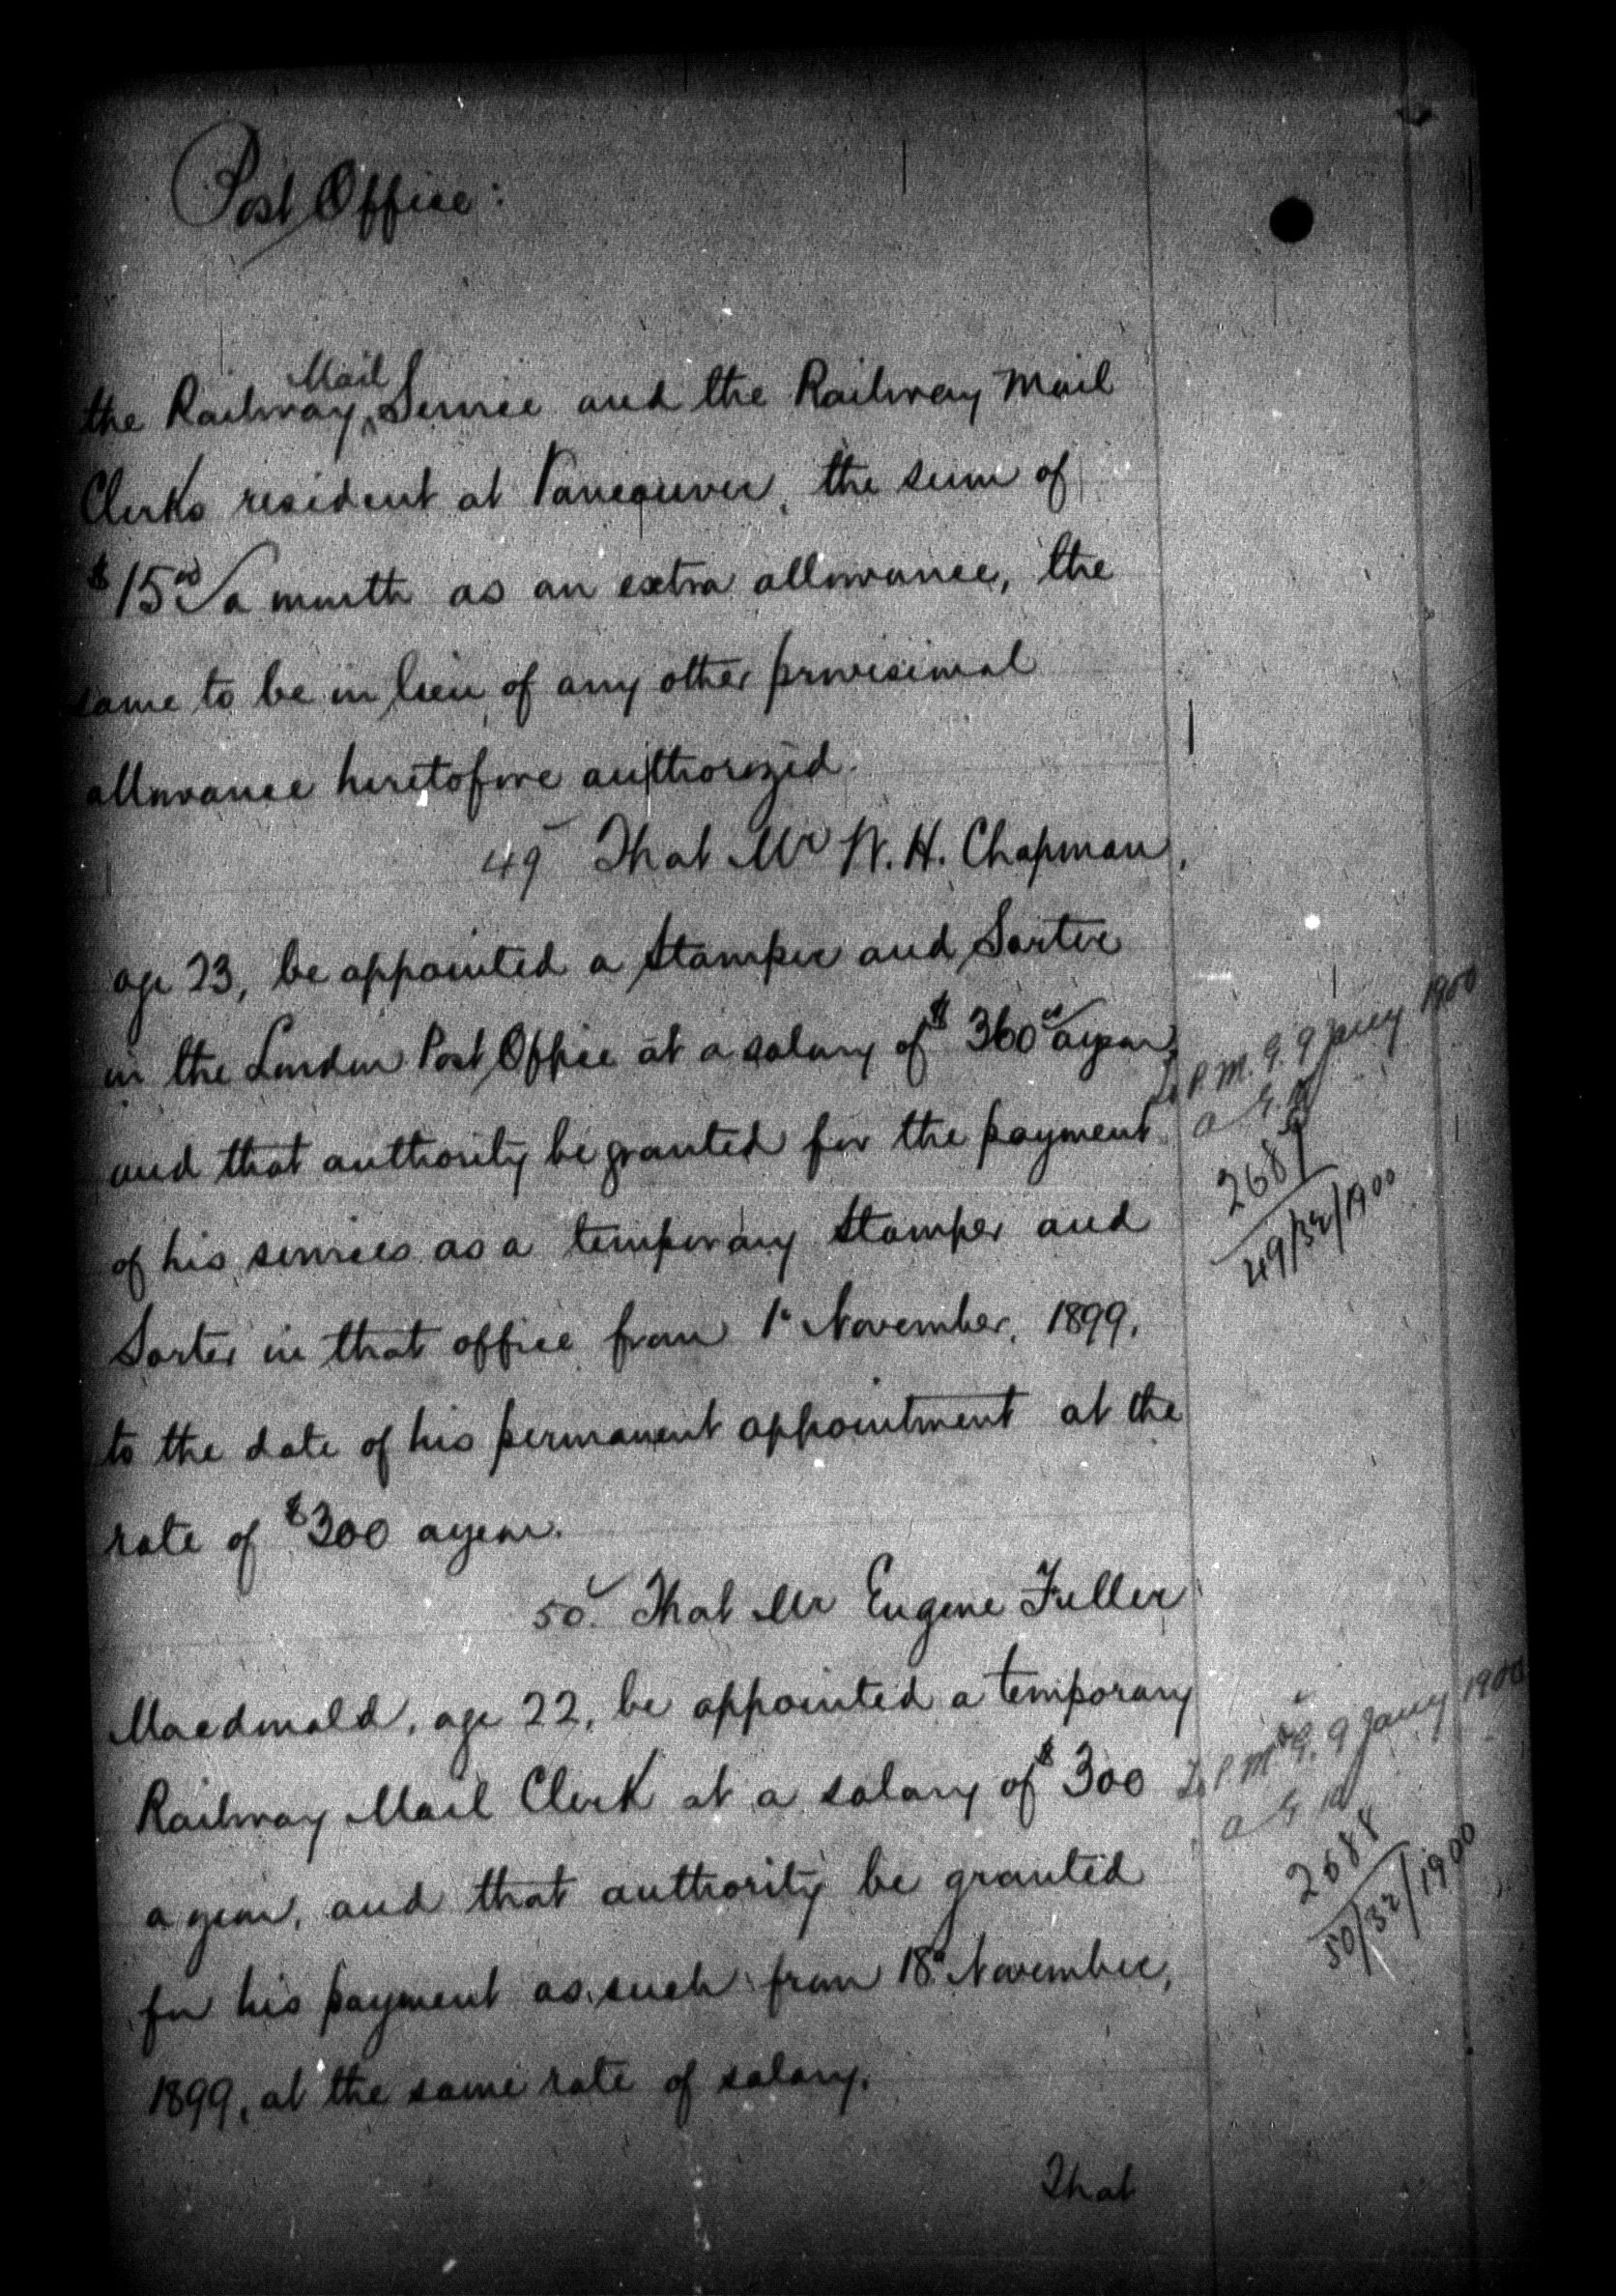 Post Office:
the Railway Mail Service and the Railway Mail
Clerks resident at Vancouver, the sum of
$15.00 a month as an extra allowance, the
same to be in lieu of any other provisional
allowance heretofore authorized.
49 That Mr W. H. Chapman,
age 23, be appointed a Stamper and Sorter
in the London Post Office at a salary of $360.00 a year,
and that authority be granted for the payment
of his services as a temporary Stamper and
Sorter in that office from 1st November, 1899,
to the date of his permanent appointment at the
rate of $300 a year.
50. That Mr Eugene Fuller
Macdonald, age 22, be appointed a temporary
Railway Mail Clerk at a salary of $300
a year, and that authority be granted
for his payment as such from 18th November,
1899, at the same rate of salary.
That
To P. M. G. 9 Jany 1900
2687
49/32/1900
To P. M. G. 9 Jany 1900
2688
50/32/1900